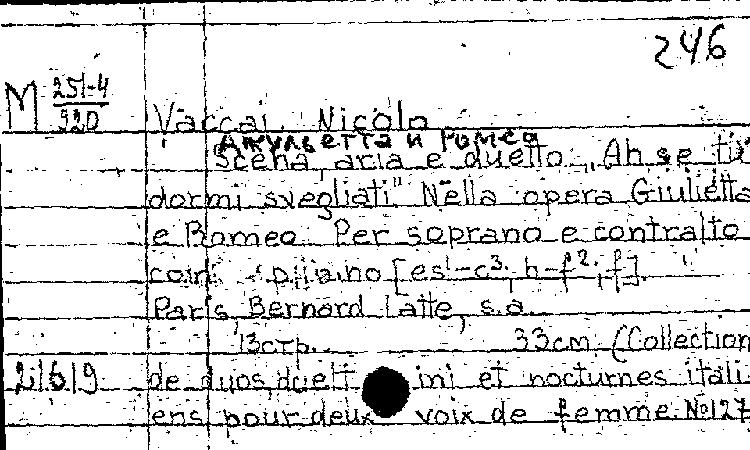 246
M 251-4
920
Vaccai, Nicolo
Джульетта и Ромео
Scena, aria e duetto „Ah se tu
dormi svegliati" Nella opera Giulietta
e Romeo. Per soprano e contralto
con piano [es¹-c³; h-f²; f].
Paris, Bernard Latte, s.a.
13стр. 33cm. (Collection
21619 de duos, duettini et nocturnes itali-
ens pour deux voix de femme. №127